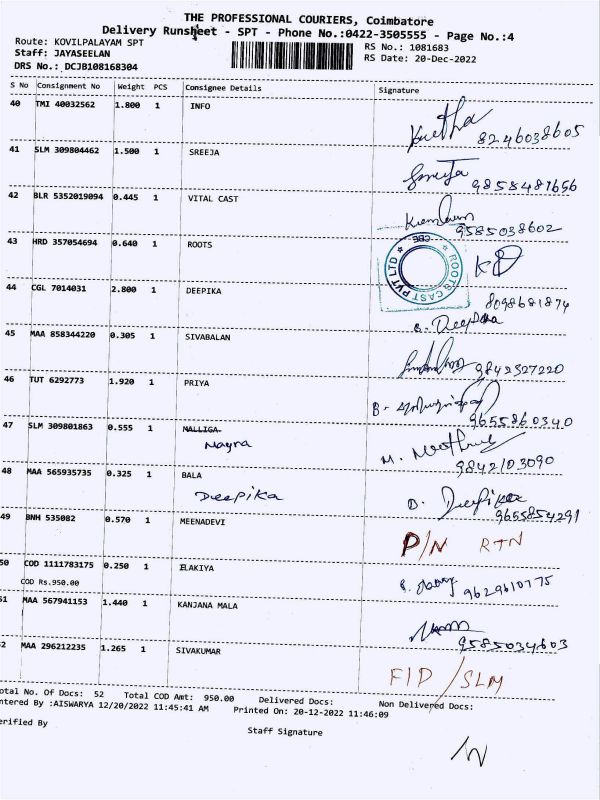 THE PROFESSIONAL COURIERS, Coimbatore
Delivery Runsheet - SPT - Phone No.:0422-3505555 - Page No.:4
Route: KOVILPALAYAM SPT
RS No.: 1081683
Staff: JAYASEELAN
RS Date: 20-Dec-2022
DRS No.: DCJB108168304
S No Consignment No Weight PCS Consignee Details Signature
40 TMI 40032562 1.800 1 INFO
8246038605
41 SLM 309804462 1.500 1 SREEJA
9858481656
42 BLR 5352019094 0.445 1 VITAL CAST
9585038602
43 HRD 357054694 0.640 1 ROOTS
ROOTS CAST PVT LTD ★ CBE ★
44 CGL 7014031 2.800 1 DEEPIKA
8098681874
Deepika
45 MAA 858344220 0.305 1 SIVABALAN
9842327220
46 TUT 6292773 1.920 1 PRIYA
9655860340
47 SLM 309801863 0.555 1 MALLIGA
Nayra
9842103090
48 MAA 565935735 0.325 1 BALA
Deepika
D. Deepikaa
9655854291
49 BNH 535082 0.570 1 MEENADEVI
P/N RTN
50 COD 1111783175 0.250 1 ELAKIYA
COD Rs.950.00
9629610775
51 MAA 567941153 1.440 1 KANJANA MALA
9585034603
52 MAA 296212235 1.265 1 SIVAKUMAR
FID/SLM
otal No. Of Docs: 52 Total COD Amt: 950.00 Delivered Docs: Non Delivered Docs:
ntered By :AISWARYA 12/20/2022 11:45:41 AM Printed On: 20-12-2022 11:46:09
erified By
Staff Signature